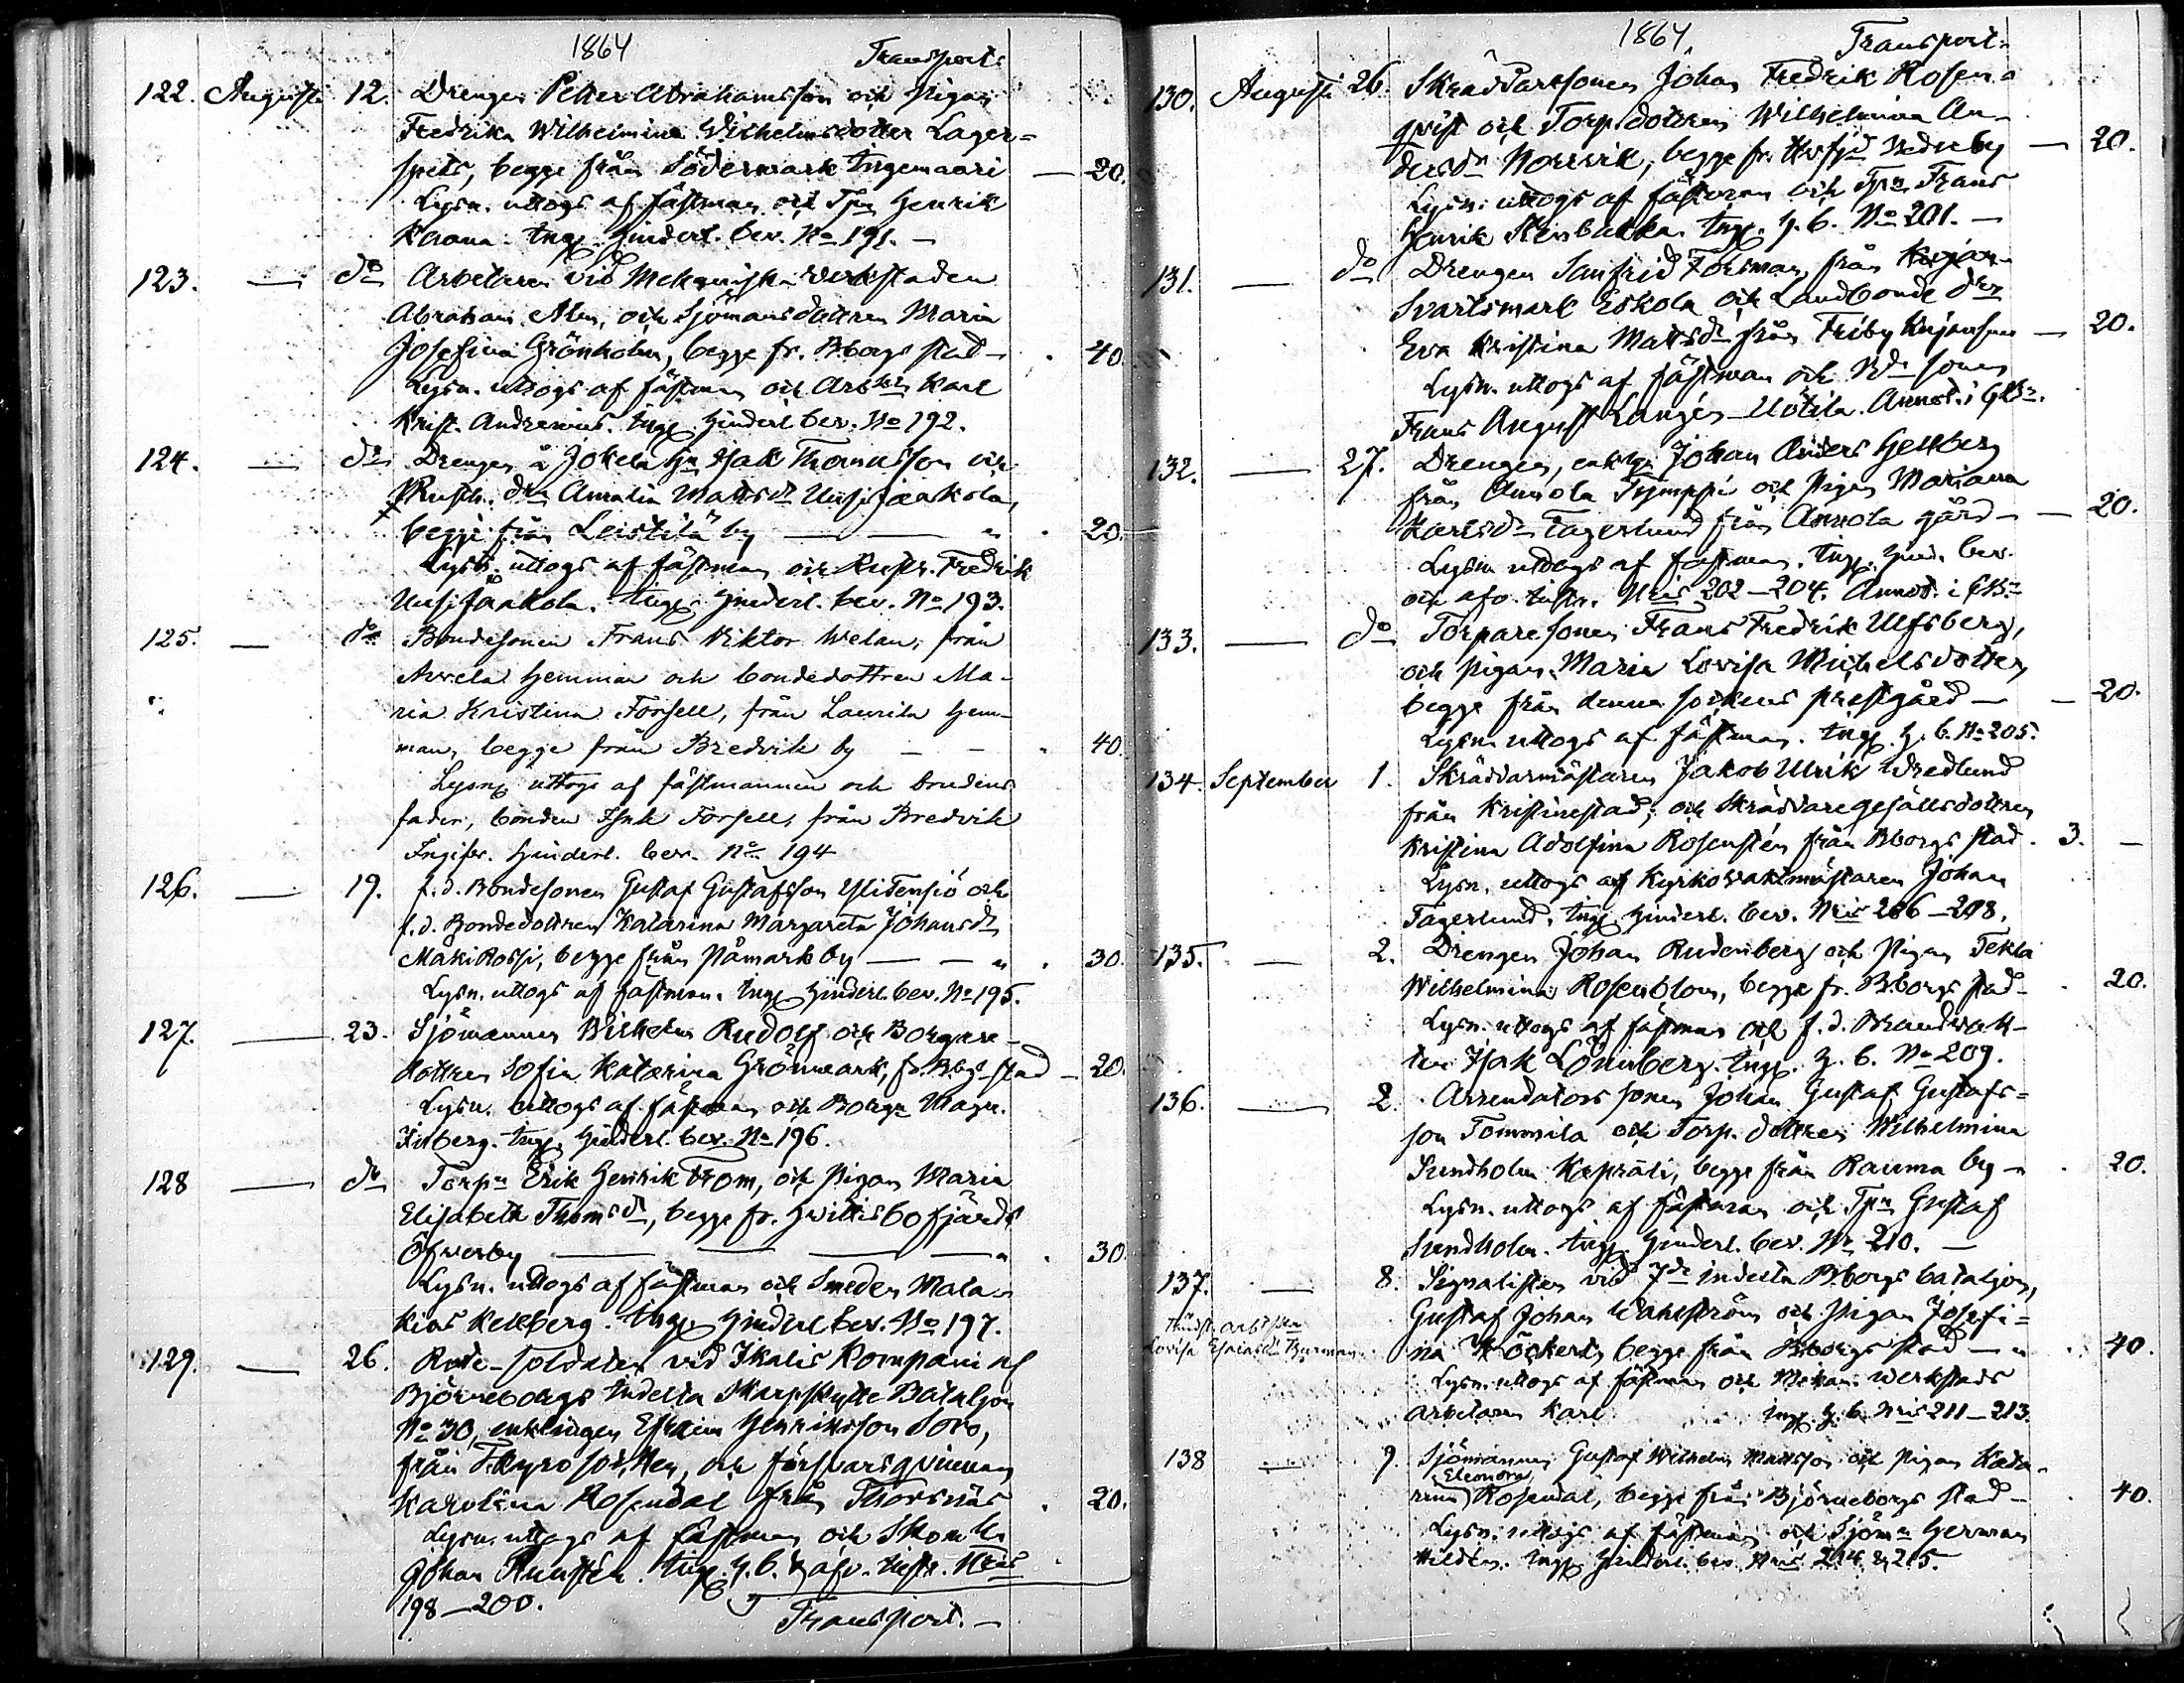 1864 Transport:
122. Augusti 12. Drengen Petter Abrahamsson och Pigan
Fredrika Wilhelmina Wilhelmsdotter Lager=
spets, begge från Södermark — 20.
Lysn. uttogs af fästman och Tpn Henrik
Krana. Ingp. Hinderl. bev. No 191. —
123. — do Arbetaren vid Mekaniska verkstaden
Abraham Alen, och Sjömansdottren Maria
Josefina Grönholm, begge fr. Bborgs stad — 40.
Lysn. uttogs af fästman och Arbkn Karl
Krist. Andrenius. Ingp. Hinderl. bev. No 192.
124. — do Drengen å Jokela Isak Thomasson och
Rusth. dtn Amalia Mattsdr Uusijaakola,
begge från Leistilä by — 20.
Lysn. uttogs af fästman och Rusth. Fredrik
Uusijaakola. Ingp. Hinderl. bev. No 193.
125. — do Bondesonen Frans Viktor Welan, från
Anrela hemman och bondedottren Ma-
ria Kristina Forsell, från Laurila hem-
man, begge från Bredvik by — 40.
Lysng uttogs af fästmannen och brudens
fader, bonden Isak Forsell, från Bredvik
Ingifv. hinderl. bev. No 194
126. — 19. f. d. Bondesonen Gustaf Gustafsson Ylitensiö och
f. d. Bondedottren Katarina Margareta Johansdr
MäkiRossi, begge från Påmark by — 30.
Lysn. uttogs af fästman. Ingp. Hinderl. bev. No 195.
127. — 23. Sjömannen Wilhelm Rudolf och Borgare-
dottren Sofia Katarina Grönmark, fr. Bbgs stad — 20.
Lysn. uttogs af fästman och Borgn Magn.
Ingp. Hinderl. bev. No 196.
128 — do Torpn Erik Henrik From, och Pigan Maria
Elisabeth Thomsdr, begge fr. Hvittisbofjärds
Öfverby — 30.
Lysn. uttogs af fästman och Smeden Mala-
kias Kellberg. Ingp. Hinderl. bev. No 197.
129. — 26. Rote-soldaten vid Ikalis Kompani af
Björneborgs Indelta Skarpskytte Bataljon
No 30, enklingen Efraim Henriksson Soro,
från Tkyro socken, och försvarsqvinnan
Karolina Rosendal från Thorsnäs . 20.
Lysn. uttogs af fästman och Skomk.
Johan Runstén. Ingp. H. b. & afv. Nris
198—200. Transport. —
1864. Transport:
130. Augusti 26. Skräddaresonen Johan Fredrik Rosen-
qvist och Torp. dottren Wilhelmina An-
dersdr Norrvik, begge fr. Nederby — 20.
Lysn. uttogs af fästman och Tpn Frans
Henrik Stenbacka. Ingp. H. b. No 201. —
131. — do Drengen Sanfrid Forsman, från
Svartsmark Eskola och Landbonde dtr
Eva Kristina Mattsdr från Friby — 20.
Lysn. uttogs af fästman och sonen
Frans August Langén-Uotila. Annot. i
132. — 27. Drengen, enkling Johan Anders Hellberg
från Annola Tymppi och Pigan Mariana
Karlsdr Fagerlund från Annola gård — 20.
Lysn. uttogs af fästman. Ingp. Hind. bev.
och afv. Nris 202—204. Annot. i
133. — do Torparesonen Frans Fredrik Ulfsberg,
och Pigan Maria Lovisa Michelsdotter,
begge från denna sockens prestgård — 20.
Lysn. uttogs af fästman. Ingp. H. b. No 205.
134. September 1. Skräddarmästaren Jakob Ulrik Wredlund
från Kristinestad, och Skräddaregesällsdottren
Kristina Adolfina Rosenstén från Bborgs stad. 3. —
Lysn. uttogs af Kyrkovaktmästaren Johan
Fagerlund. Ingp. Hinderl. bev. Nris 206—208.
135. — 2. Drengen Johan Rudenberg och Pigan Tekla
Wilhelmina Rosenblom, begge fr. Bborgs stad — 20.
Lysn. uttogs af fästman och f. d. Brandvak-
ten Isak Lönnberg. Ingp. H. b. No 209.
136. — 2. Arrendatorssonen Johan Gustaf Gustafs=
son Tommila och Torp. dottren Wilhelmina
Sundholm Kapräli, begge från Rauma by — 20.
Lysn. uttogs af fästman och Tpn Gustaf
Sundholm. Ingp. Hinderl. bev. Nr 210. —
137. — 8. Signalisten vid 7de indelta Bborgs bataljon,
Gustaf Johan Wahlström och Pigan Josefi=
na Höckert, begge från Bborgs stad — 40.
Lovisa
Lysn. uttogs af fästman och Mekan. werkstads
arbetaren Karl Ingp. H. b. Nris 211—213
138 — 9. Sjömannen Gustaf Wilhelm Mattsson och Pigan Kata-
rina Eleonora Rosendal, begge från Björneborgs stad — 40.
Lysn. uttogs af fästman och Sjömn Herman
Hildén. Ingp. Hinderl. bev. Nris 214 & 215.